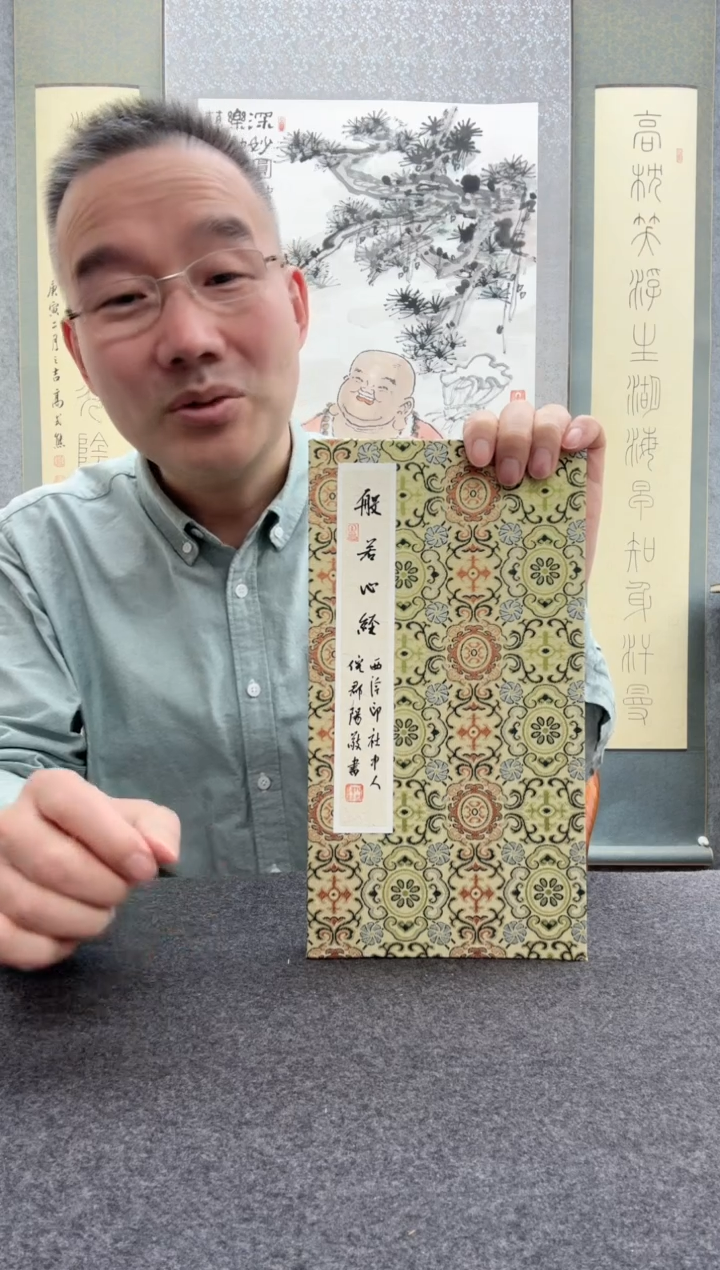 般若心經
西泠印社中人
倪郡陽敬書
高枕笑浮生湖海早知身汗曼
深妙圓
樂
庚寅二月之吉高式熊
除